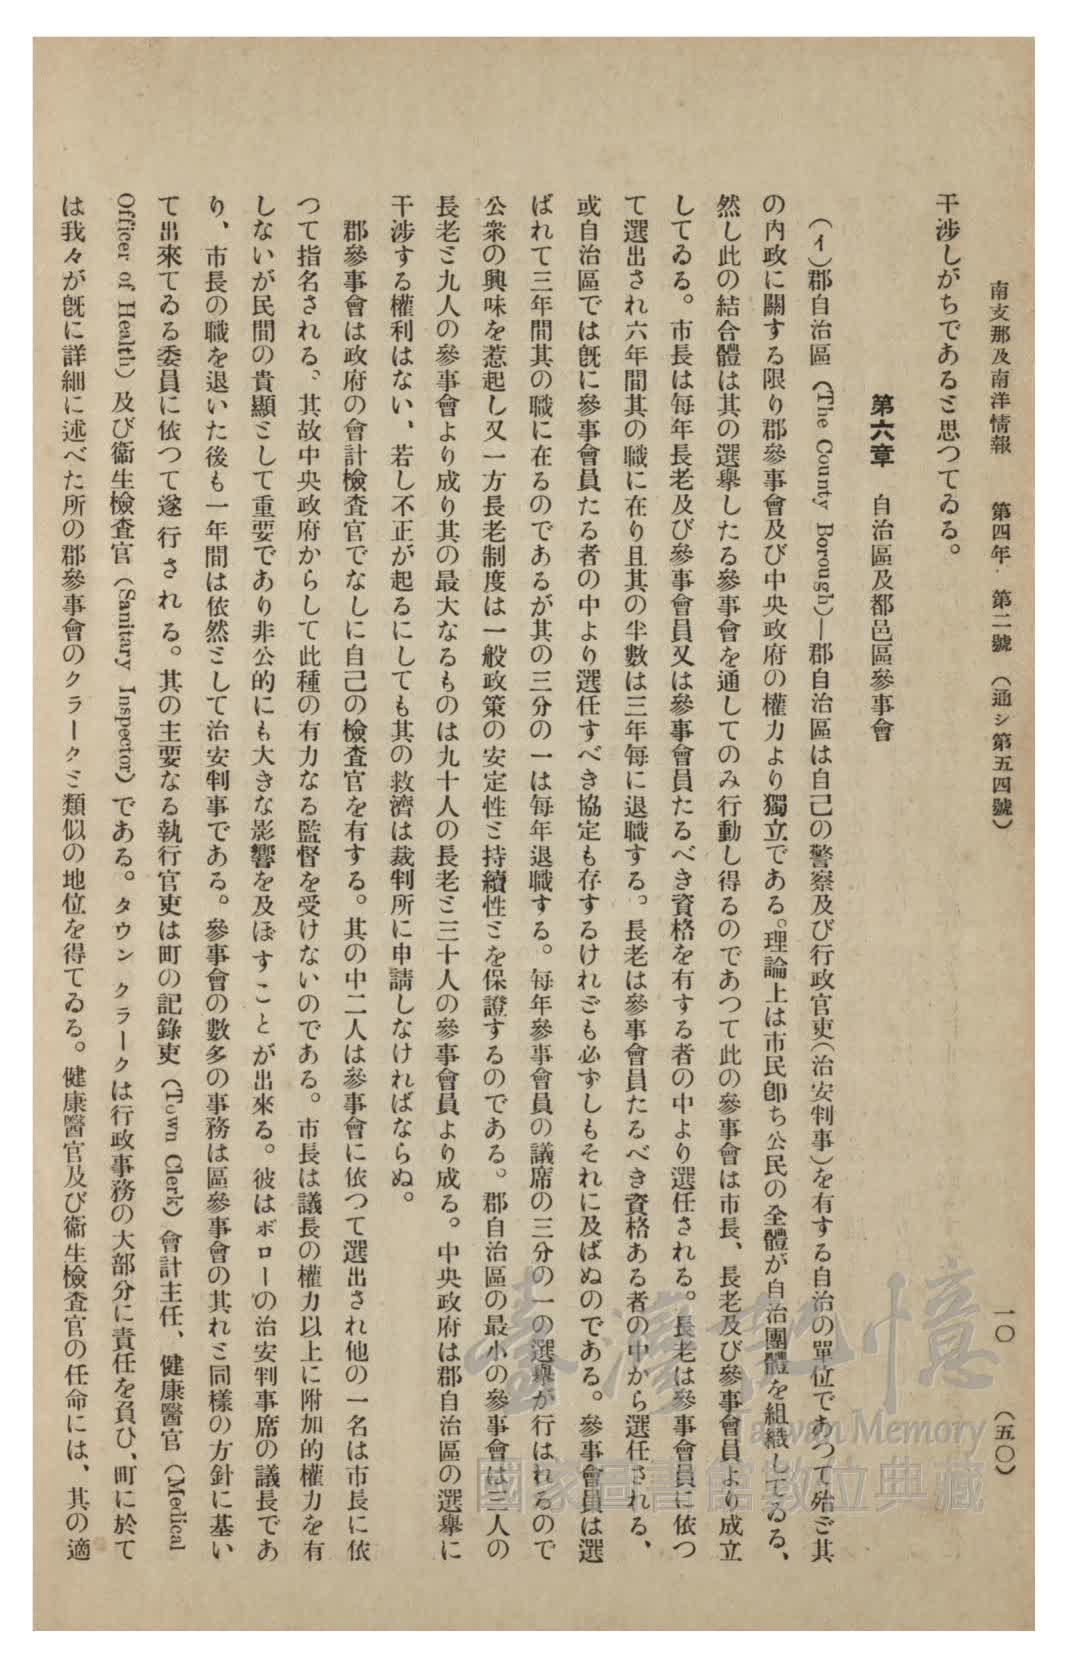 南支那及南洋情報　第四年・第二號　(通シ第五四號)　一〇　(五〇)
干涉しがちであるミ思つてゐる。
第六章　自治區及都邑區參事會
(イ)郡自治區 (The County Borough)—郡自治區は自己の警察及び行政官吏(治安判事)を有する自治の單位であつて殆ご其
の內政に關する限り郡參事會及び中央政府の權力より獨立である。理論上は市民卽ち公民の全體が自治團體を組織してゐる、
然し此の結合體は其の選擧したる參事會を通してのみ行動し得るのであつて此の參事會は市長、長老及び參事會員より成立
してゐる。市長は每年長老及び參事會員又は參事會員たるべき資格を有する者の中より選任される。長老は參事會員に依つ
て選出され六年間其の職に在り且其の半數は三年每に退職する。長老は參事會員たるべき資格ある者の中から選任される、
或自治區では旣に參事會員たる者の中より選任すべき協定も存するけれごも必ずしもそれに及ばぬのである。參事會員は選
ばれて三年間其の職に在るのであるが其の三分の一は每年退職する。每年參事會員の議席の三分の一の選擧が行はれるので
公衆の興味を惹起し又一方長老制度は一般政策の安定性ミ持續性ミを保證するのである。郡自治區の最小の參事會は三人の
長老ミ九人の參事會より成り其の最大なるものは九十人の長老ミ三十人の參事會員より成る。中央政府は郡自治區の選擧に
干涉する權利はない、若し不正が起るにしても其の救濟は裁判所に申請しなければならぬ。
郡參事會は政府の會計檢査官でなしに自己の檢査官を有する。其の中二人は參事會に依つて選出され他の一名は市長に依
つて指名される。其故中央政府からして此種の有力なる監督を受けないのである。市長は議長の權力以上に附加的權力を有
しないが民間の貴顯ミして重要であり非公的にも大きな影響を及ぼすことが出來る。彼はボローの治安判事席の議長であ
り、市長の職を退いた後も一年間は依然ミして治安判事である。參事會の數多の事務は區參事會の其れミ同樣の方針に基い
て出來てゐる委員に依つて遂行される。其の主要なる執行官吏は町の記錄吏 (Town Clerk) 會計主任、健康醫官 (Medical
Officer of Health) 及び衞生檢査官 (Sanitary Inspector) である。タウン クラークは行政事務の大部分に責任を負ひ、町に於て
は我々が旣に詳細に述べた所の郡參事會のクラークミ類似の地位を得てゐる。健康醫官及び衞生檢査官の任命には、其の適
臺灣記憶
Taiwan Memory
國家圖書館數位典藏